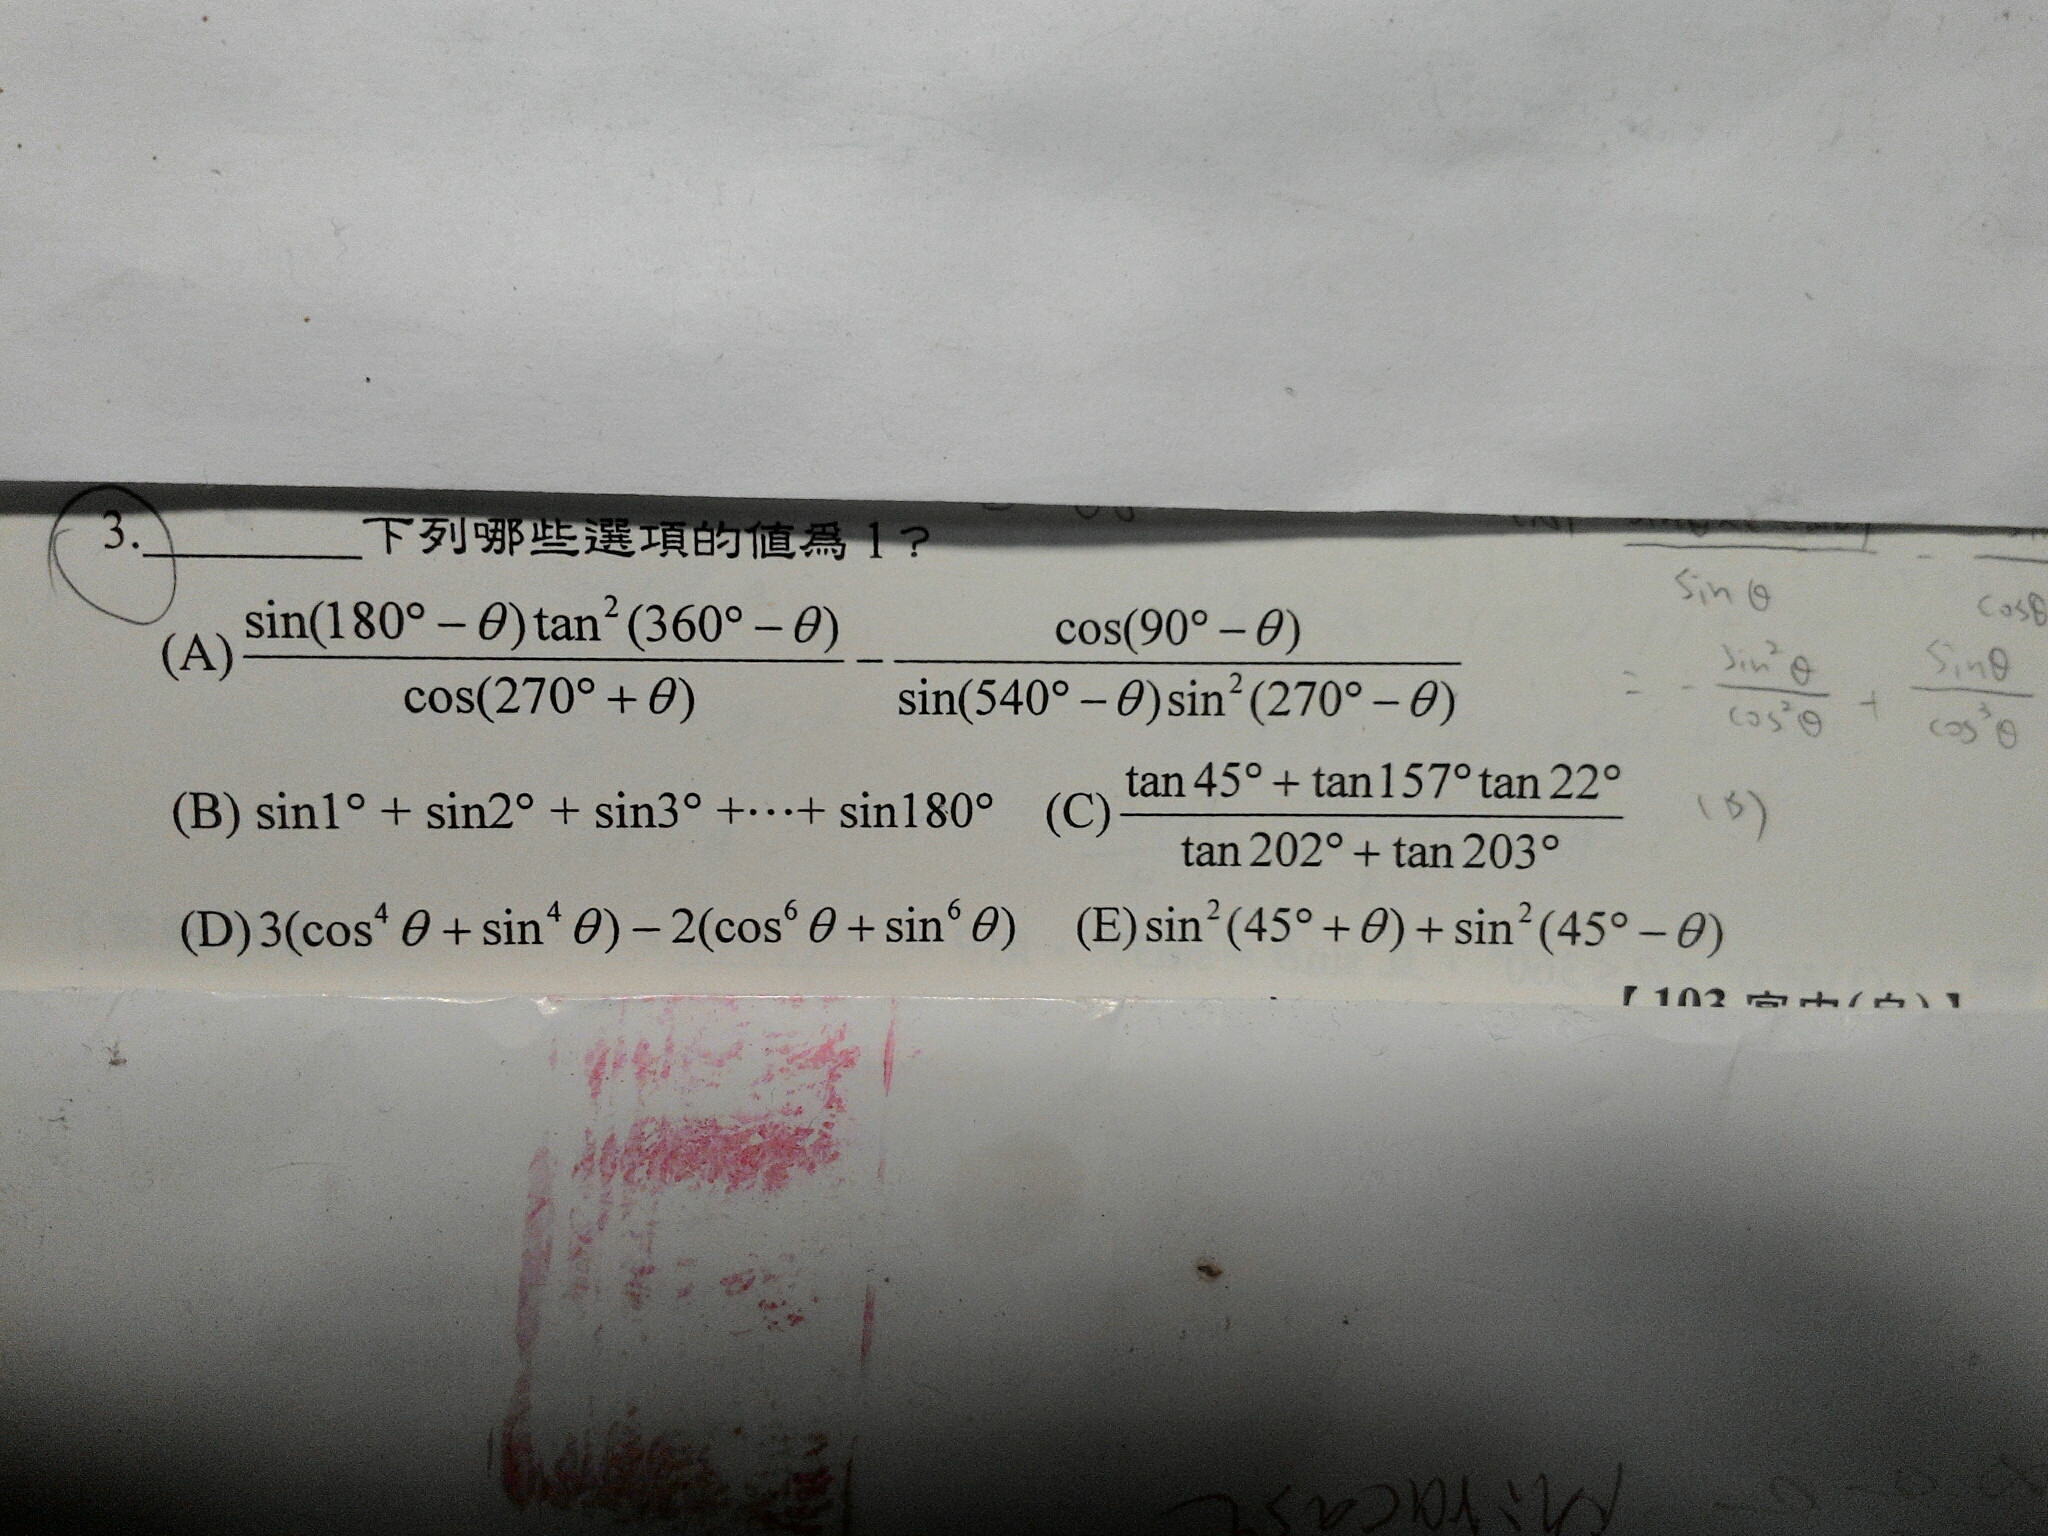 3. ________ 下列哪些選項的値爲 1？
(A) \frac{sin(180° − θ) tan²(360° − θ)}{cos(270° + θ)} − \frac{cos(90° − θ)}{sin(540° − θ) sin²(270° − θ)}
sin θ cosθ
= − \frac{sin²θ}{cos²θ} + \frac{sinθ}{cos³θ}
(B) sin1° + sin2° + sin3° +⋯+ sin180° (C) \frac{tan 45° + tan157° tan 22°}{tan 202° + tan 203°} (B)
(D) 3(cos⁴ θ + sin⁴ θ) − 2(cos⁶ θ + sin⁶ θ) (E) sin²(45° + θ) + sin²(45° − θ)
【103